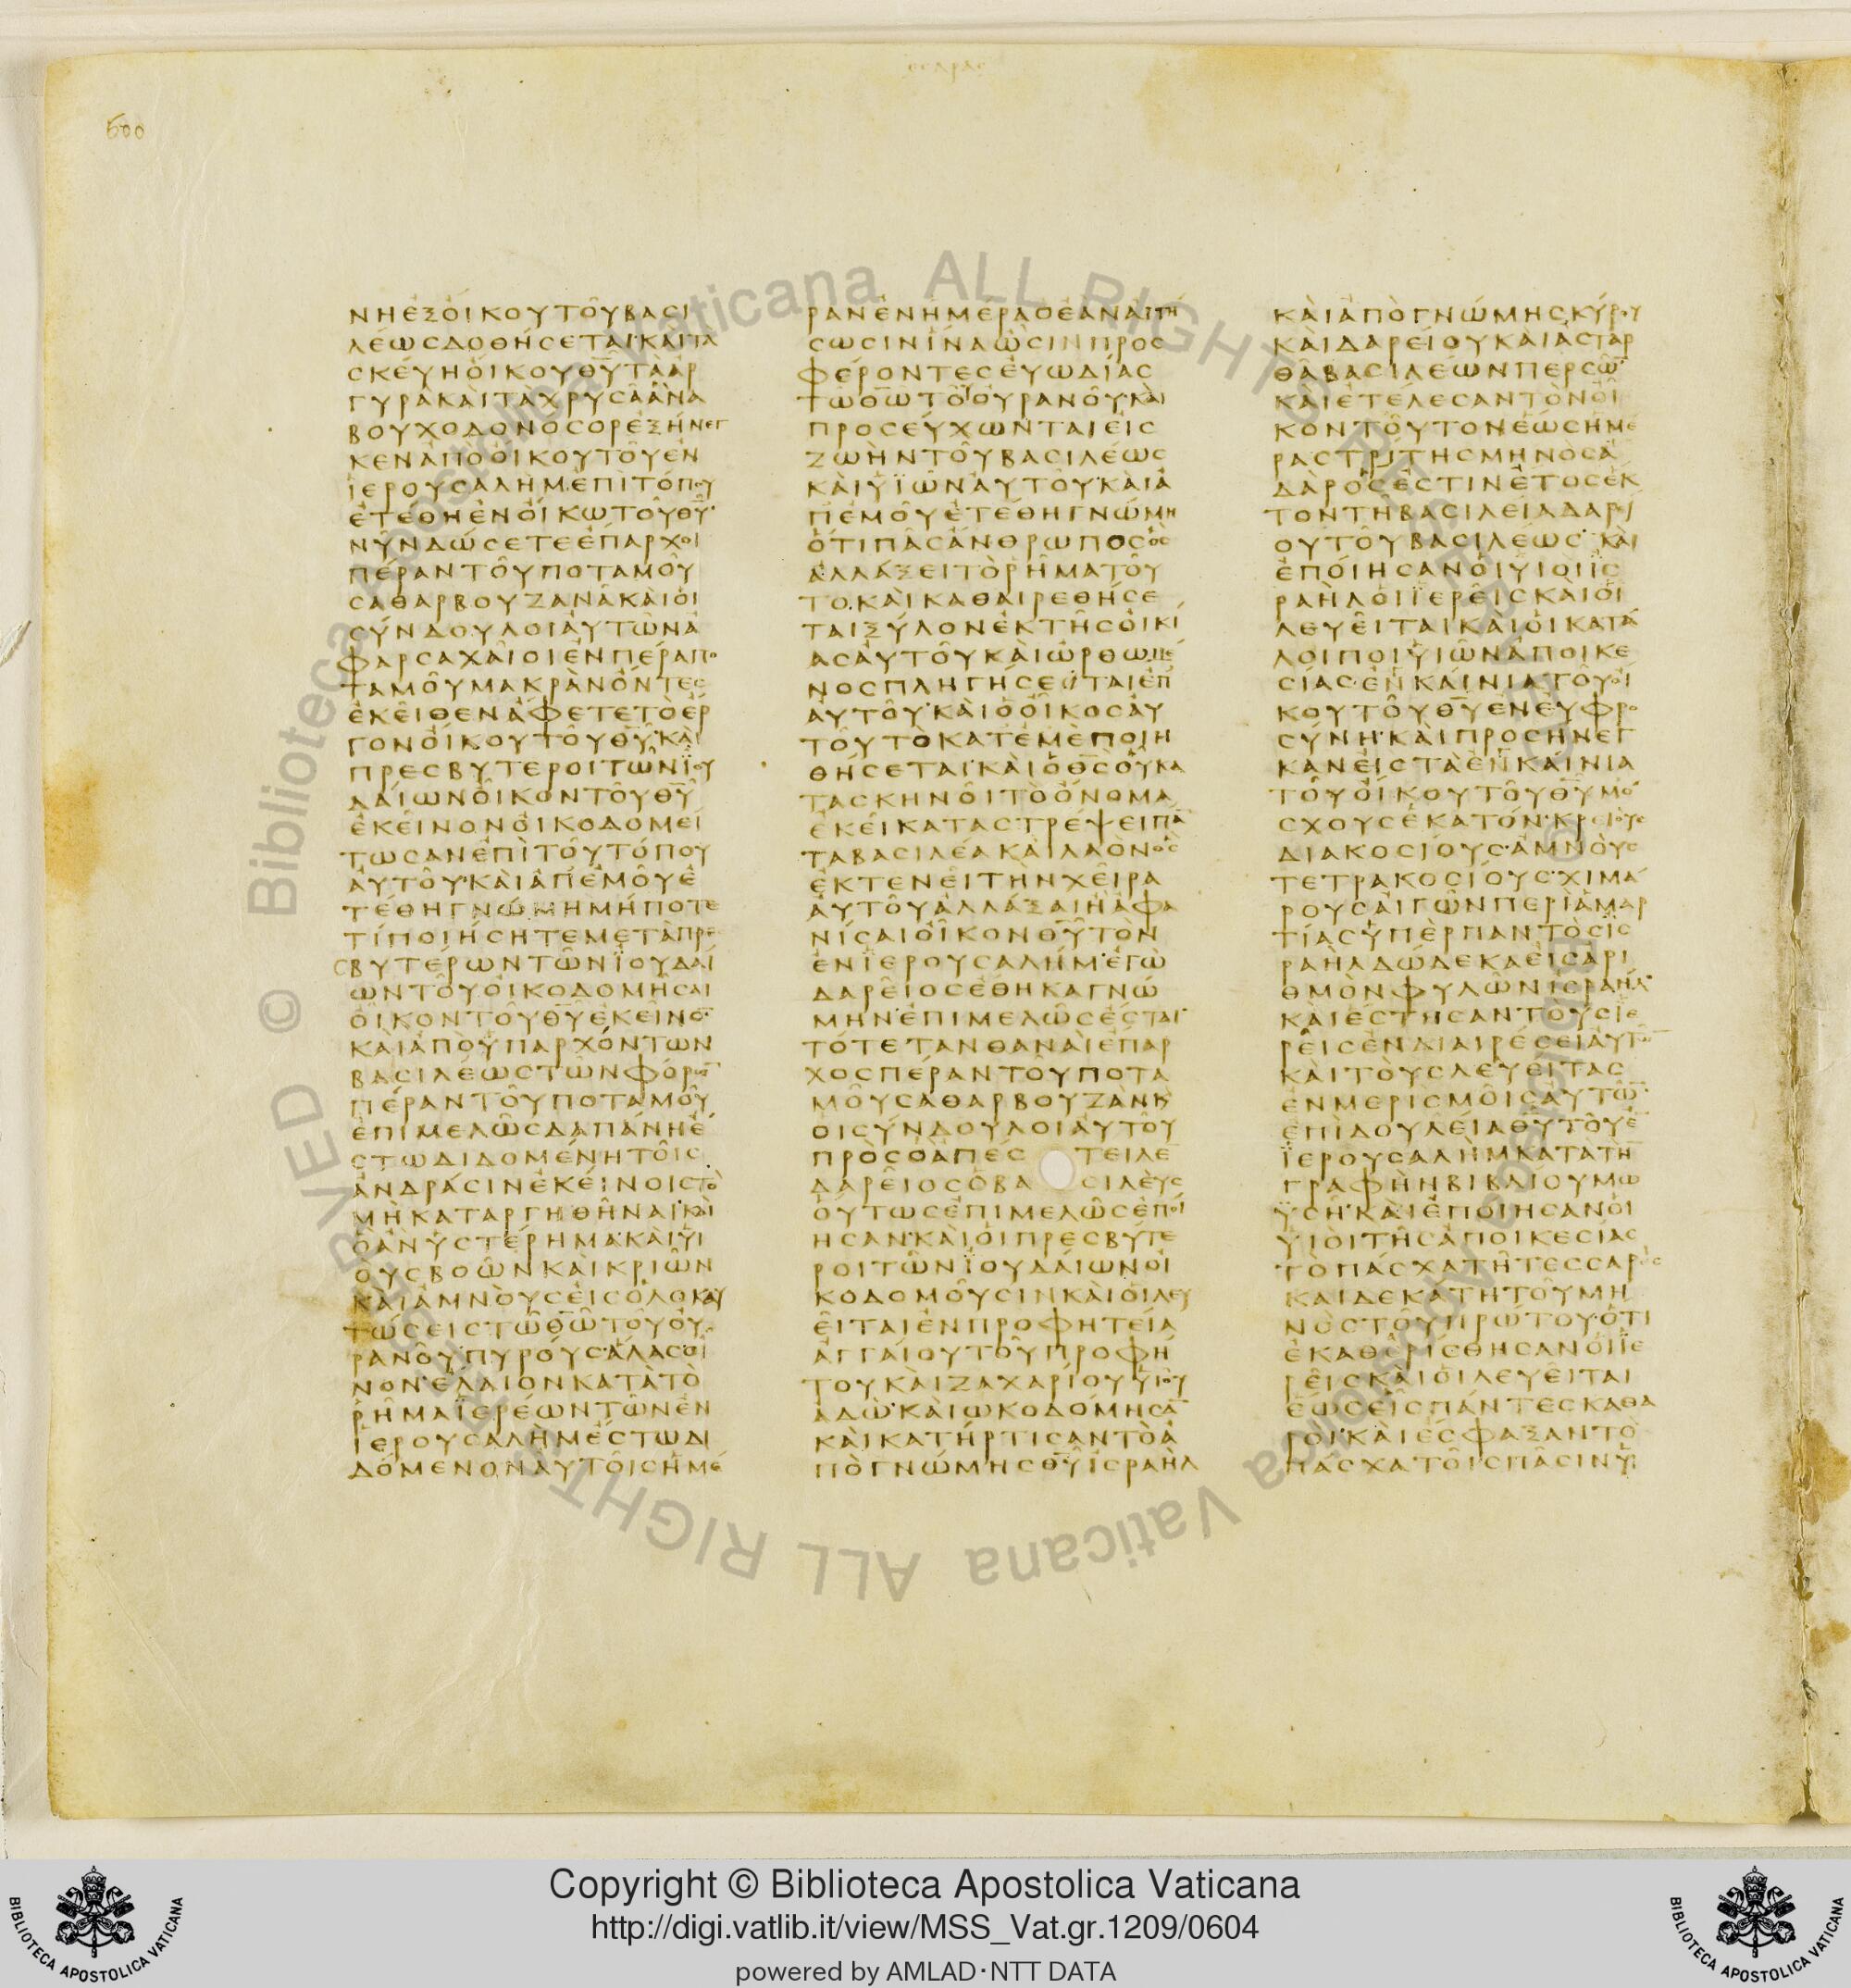 εσδρας
600
ΝΗΕΞΟΙΚΟΥΤΟΥΒΑϹΙ
ΛΕΩϹΔΟΘΗϹΕΤΑΙ·ΚΑΙΤΑ
ϹΚΕΥΗΟΙΚΟΥΘ̅Υ̅ΤΑΑΡ
ΓΥΡΑΚΑΙΤΑΧΡΥϹΑΑΝΑ
ΒΟΥΧΟΔΟΝΟϹΟΡΕΞΗΝΕΓ
ΚΕΝΑΠΟΟΙΚΟΥΤΟΥΕΝ
ΪΕΡΟΥϹΑΛΗΜ·ΕΠΙΤΟΠΟΥ
ΕΤΕΘΗΕΝΟΙΚΩΤΟΥΘ̅Υ̅·
ΝΥΝΔΩϹΕΤΕΕΠΑΡΧΟΙ
ΠΕΡΑΝΤΟΥΠΟΤΑΜΟΥ
ϹΑΘΑΡΒΟΥΖΑΝΑΚΑΙΟΙ
ϹΥΝΔΟΥΛΟΙΑΥΤΩΝΑ
ΦΑΡϹΑΧΑΙΟΙΕΝΠΕΡΑΠΟ
ΤΑΜΟΥΜΑΚΡΑΝΟΝΤΕϹ
ΕΚΕΙΘΕΝΑΦΕΤΕΤΟΕΡ
ΓΟΝΟΙΚΟΥΤΟΥΘ̅Υ̅·ΚΑΙ
ΠΡΕϹΒΥΤΕΡΟΙΤΩΝΪΟΥ
ΔΑΙΩΝΟΙΚΟΝΤΟΥΘ̅Υ̅
ΕΚΕΙΝΟΝΟΙΚΟΔΟΜΕΙ
ΤΩϹΑΝΕΠΙΤΟΥΤΟΠΟΥ
ΑΥΤΟΥ·ΚΑΙΑΠΕΜΟΥΕ
ΤΕΘΗΓΝΩΜΗΜΗΠΟΤΕ
ΤΙΠΟΙΗϹΗΤΕΜΕΤΑΠΡΕ
ϹΒΥΤΕΡΩΝΤΩΝΪΟΥΔΑΙ
ΩΝΤΟΥΟΙΚΟΔΟΜΗϹΑΙ
ΟΙΚΟΝΤΟΥΘ̅Υ̅ΕΚΕΙΝΟ̅·
ΚΑΙΑΠΟΥΠΑΡΧΟΝΤΩΝ
ΒΑϹΙΛΕΩϹΤΩΝΦΟΡΩ̅
ΠΕΡΑΝΤΟΥΠΟΤΑΜΟΥ
ΕΠΙΜΕΛΩϹΔΑΠΑΝΗΕ
ϹΤΩΔΙΔΟΜΕΝΗΤΟΙϹ
ΑΝΔΡΑϹΙΝΕΚΕΙΝΟΙϹΤΟ
ΜΗΚΑΤΑΡΓΗΘΗΝΑΙ·ΚΑΙ
ΟΑΝΥϹΤΕΡΗΜΑ·ΚΑΙΥΙ
ΟΥϹΒΟΩΝΚΑΙΚΡΙΩΝ
ΚΑΙΑΜΝΟΥϹΕΙϹΟΛΟΚΑΥ
ΤΩϹΕΙϹΤΩΘ̅Ω̅ΤΟΥΟΥ
ΡΑΝΟΥ·ΠΥΡΟΥϹ·ΑΛΑϹ·ΟΙ
ΝΟΝ·ΕΛΑΙΟΝΚΑΤΑΤΟ
ΡΗΜΑΪΕΡΕΩΝΤΩΝΕΝ
ΪΕΡΟΥϹΑΛΗΜΕϹΤΩΔΙ
ΔΟΜΕΝΟΝΑΥΤΟΙϹΗΜΕ
ΡΑΝΕΝΗΜΕΡΑΟΕΑΝΑΙΤΗ
ϹΩϹΙΝΙΝΑΩϹΙΝΠΡΟϹ
ΦΕΡΟΝΤΕϹΕΥΩΔΙΑϹ
ΤΩΘ̅Ω̅ΤΟΥΟΥΡΑΝΟΥ·ΚΑΙ
ΠΡΟϹΕΥΧΩΝΤΑΙΕΙϹ
ΖΩΗΝΤΟΥΒΑϹΙΛΕΩϹ
ΚΑΙΥΪΩΝΑΥΤΟΥ·ΚΑΙΑ
ΠΕΜΟΥΕΤΕΘΗΓΝΩΜΗ
ΟΤΙΠΑϹΑΝΘΡΩΠΟϹΟϹ
ΑΛΛΑΞΕΙΤΟΡΗΜΑΤΟΥ
ΤΟ·ΚΑΙΚΑΘΑΙΡΕΘΗϹΕ
ΤΑΙΞΥΛΟΝΕΚΤΗϹΟΙΚΙ
ΑϹΑΥΤΟΥΚΑΙΩΡΘΩΜΕ
ΝΟϹΠΛΗΓΗϹΕΤΑΙΕΠ
ΑΥΤΟΥ·ΚΑΙΟΟΙΚΟϹΑΥ
ΤΟΥΤΟΚΑΤΕΜΕΠΟΙΗ
ΘΗϹΕΤΑΙ·ΚΑΙΟΘ̅Ϲ̅ΟΥΚΑ
ΤΑϹΚΗΝΟΙΤΟΟΝΟΜΑ
ΕΚΕΙΚΑΤΑϹΤΡΕΨΕΙΠΑ̅
ΤΑΒΑϹΙΛΕΑΚΑΙΛΑΟΝΟϹ
ΕΚΤΕΝΕΙΤΗΝΧΕΙΡΑ
ΑΥΤΟΥΑΛΛΑΞΑΙΗΑΦΑ
ΝΙϹΑΙΟΙΚΟΝΘ̅Υ̅ΤΟΝ
ΕΝΪΕΡΟΥϹΑΛΗΜ·ΕΓΩ
ΔΑΡΕΙΟϹΕΘΗΚΑΓΝΩ
ΜΗΝ·ΕΠΙΜΕΛΩϹΕϹΤΑΙ·
ΤΟΤΕΤΑΝΘΑΝΑΙΕΠΑΡ
ΧΟϹΠΕΡΑΝΤΟΥΠΟΤΑ
ΜΟΥϹΑΘΑΡΒΟΥΖΑΝΚ
ΟΙϹΥΝΔΟΥΛΟΙΑΥΤΟΥ
ΠΡΟϹΟΑΠΕϹΤΕΙΛΕ
ΔΑΡΕΙΟϹΟΒΑϹΙΛΕΥϹ
ΟΥΤΩϹΕΠΙΜΕΛΩϹΕΠΟΙ
ΗϹΑΝ·ΚΑΙΟΙΠΡΕϹΒΥΤΕ
ΡΟΙΤΩΝΪΟΥΔΑΙΩΝΟΙ
ΚΟΔΟΜΟΥϹΙΝΚΑΙΟΙΛΕΥ
ΕΙΤΑΙΕΝΠΡΟΦΗΤΕΙΑ
ΑΓΓΑΙΟΥΤΟΥΠΡΟΦΗ
ΤΟΥΚΑΙΖΑΧΑΡΙΟΥΥΙΟΥ
ΑΔΩ·ΚΑΙΩΚΟΔΟΜΗϹΑ̅
ΚΑΙΚΑΤΗΡΤΙϹΑΝΤΟΑ
ΠΟΓΝΩΜΗϹΘ̅Υ̅ΙϹΡΑΗΛ
ΚΑΙΑΠΟΓΝΩΜΗϹΚΥΡΟΥ
ΚΑΙΔΑΡΕΙΟΥΚΑΙΑϹΤΑΡ
ΘΑΒΑϹΙΛΕΩΝΠΕΡϹΩ̅·
ΚΑΙΕΤΕΛΕϹΑΝΤΟΝΟΙ
ΚΟΝΤΟΥΤΟΝΕΩϹΗΜΕ
ΡΑϹΤΡΙΤΗϹΜΗΝΟϹΑ
ΔΑΡΟϹΕϹΤΙΝΕΤΟϹΕΚ
ΤΟΝΤΗΒΑϹΙΛΕΙΑΔΑΡΙ
ΟΥΤΟΥΒΑϹΙΛΕΩϹ·ΚΑΙ
ΕΠΟΙΗϹΑΝΟΙΥΙΟΙΪϹ
ΡΑΗΛΟΙΪΕΡΕΙϹΚΑΙΟΙ
ΛΕΥΕΙΤΑΙΚΑΙΟΙΚΑΤΑ
ΛΟΙΠΟΙΥΙΩΝΑΠΟΙΚΕ
ϹΙΑϹ·ΕΝΚΑΙΝΙΑΤΟΥΟΙ
ΚΟΥΤΟΥΘ̅Υ̅ΕΝΕΥΦΡΟ
ϹΥΝΗ·ΚΑΙΠΡΟϹΗΝΕΓ
ΚΑΝΕΙϹΤΑΕΝΚΑΙΝΙΑ
ΤΟΥΟΙΚΟΥΤΟΥΘ̅Υ̅ΜΟ
ϹΧΟΥϹΕΚΑΤΟΝ·ΚΡΕΙΟΥϹ
ΔΙΑΚΟϹΙΟΥϹ·ΑΜΝΟΥϹ
ΤΕΤΡΑΚΟϹΙΟΥϹ·ΧΙΜΑ
ΡΟΥϹΑΙΓΩΝΠΕΡΙΑΜΑΡ
ΤΙΑϹΥΠΕΡΠΑΝΤΟϹΙϹ
ΡΑΗΛΔΩΔΕΚΑΕΙϹΑΡΙ
ΘΜΟΝΦΥΛΩΝΙϹΡΑΗΛ·
ΚΑΙΕϹΤΗϹΑΝΤΟΥϹΪΕ
ΡΕΙϹΕΝΔΙΑΙΡΕϹΕΙΑΥΤΩ̅
ΚΑΙΤΟΥϹΛΕΥΕΙΤΑϹ
ΕΝΜΕΡΙϹΜΟΙϹΑΥΤΩ̅
ΕΠΙΔΟΥΛΕΙΑΘ̅Υ̅ΤΟΥΕ̅
ΪΕΡΟΥϹΑΛΗΜΚΑΤΑΤΗ̅
ΓΡΑΦΗΝΒΙΒΛΙΟΥΜΩ
ΥϹΗ·ΚΑΙΕΠΟΙΗϹΑΝΟΙ
ΥΙΟΙΤΗϹΑΠΟΙΚΕϹΙΑϹ
ΤΟΠΑϹΧΑΤΗΤΕϹϹΑΡΕϹ
ΚΑΙΔΕΚΑΤΗΤΟΥΜΗ
ΝΟϹΤΟΥΠΡΩΤΟΥ·ΟΤΙ
ΕΚΑΘΕΡΙϹΘΗϹΑΝΟΙΪΕ
ΡΕΙϹΚΑΙΟΙΛΕΥΕΙΤΑΙ
ΕΩϹΕΙϹΠΑΝΤΕϹΚΑΘΑ
ΡΟΙ·ΚΑΙΕϹΦΑΞΑΝΤΟ
ΠΑϹΧΑΤΟΙϹΠΑϹΙΝΥΙ
Copyright © Biblioteca Apostolica Vaticana
http://digi.vatlib.it/view/MSS_Vat.gr.1209/0604
powered by AMLAD·NTT DATA
BIBLIOTECA APOSTOLICA VATICANA
BIBLIOTECA APOSTOLICA VATICANA
© Biblioteca Apostolica Vaticana ALL RIGHTS RESERVED
© Biblioteca Apostolica Vaticana ALL RIGHTS RESERVED